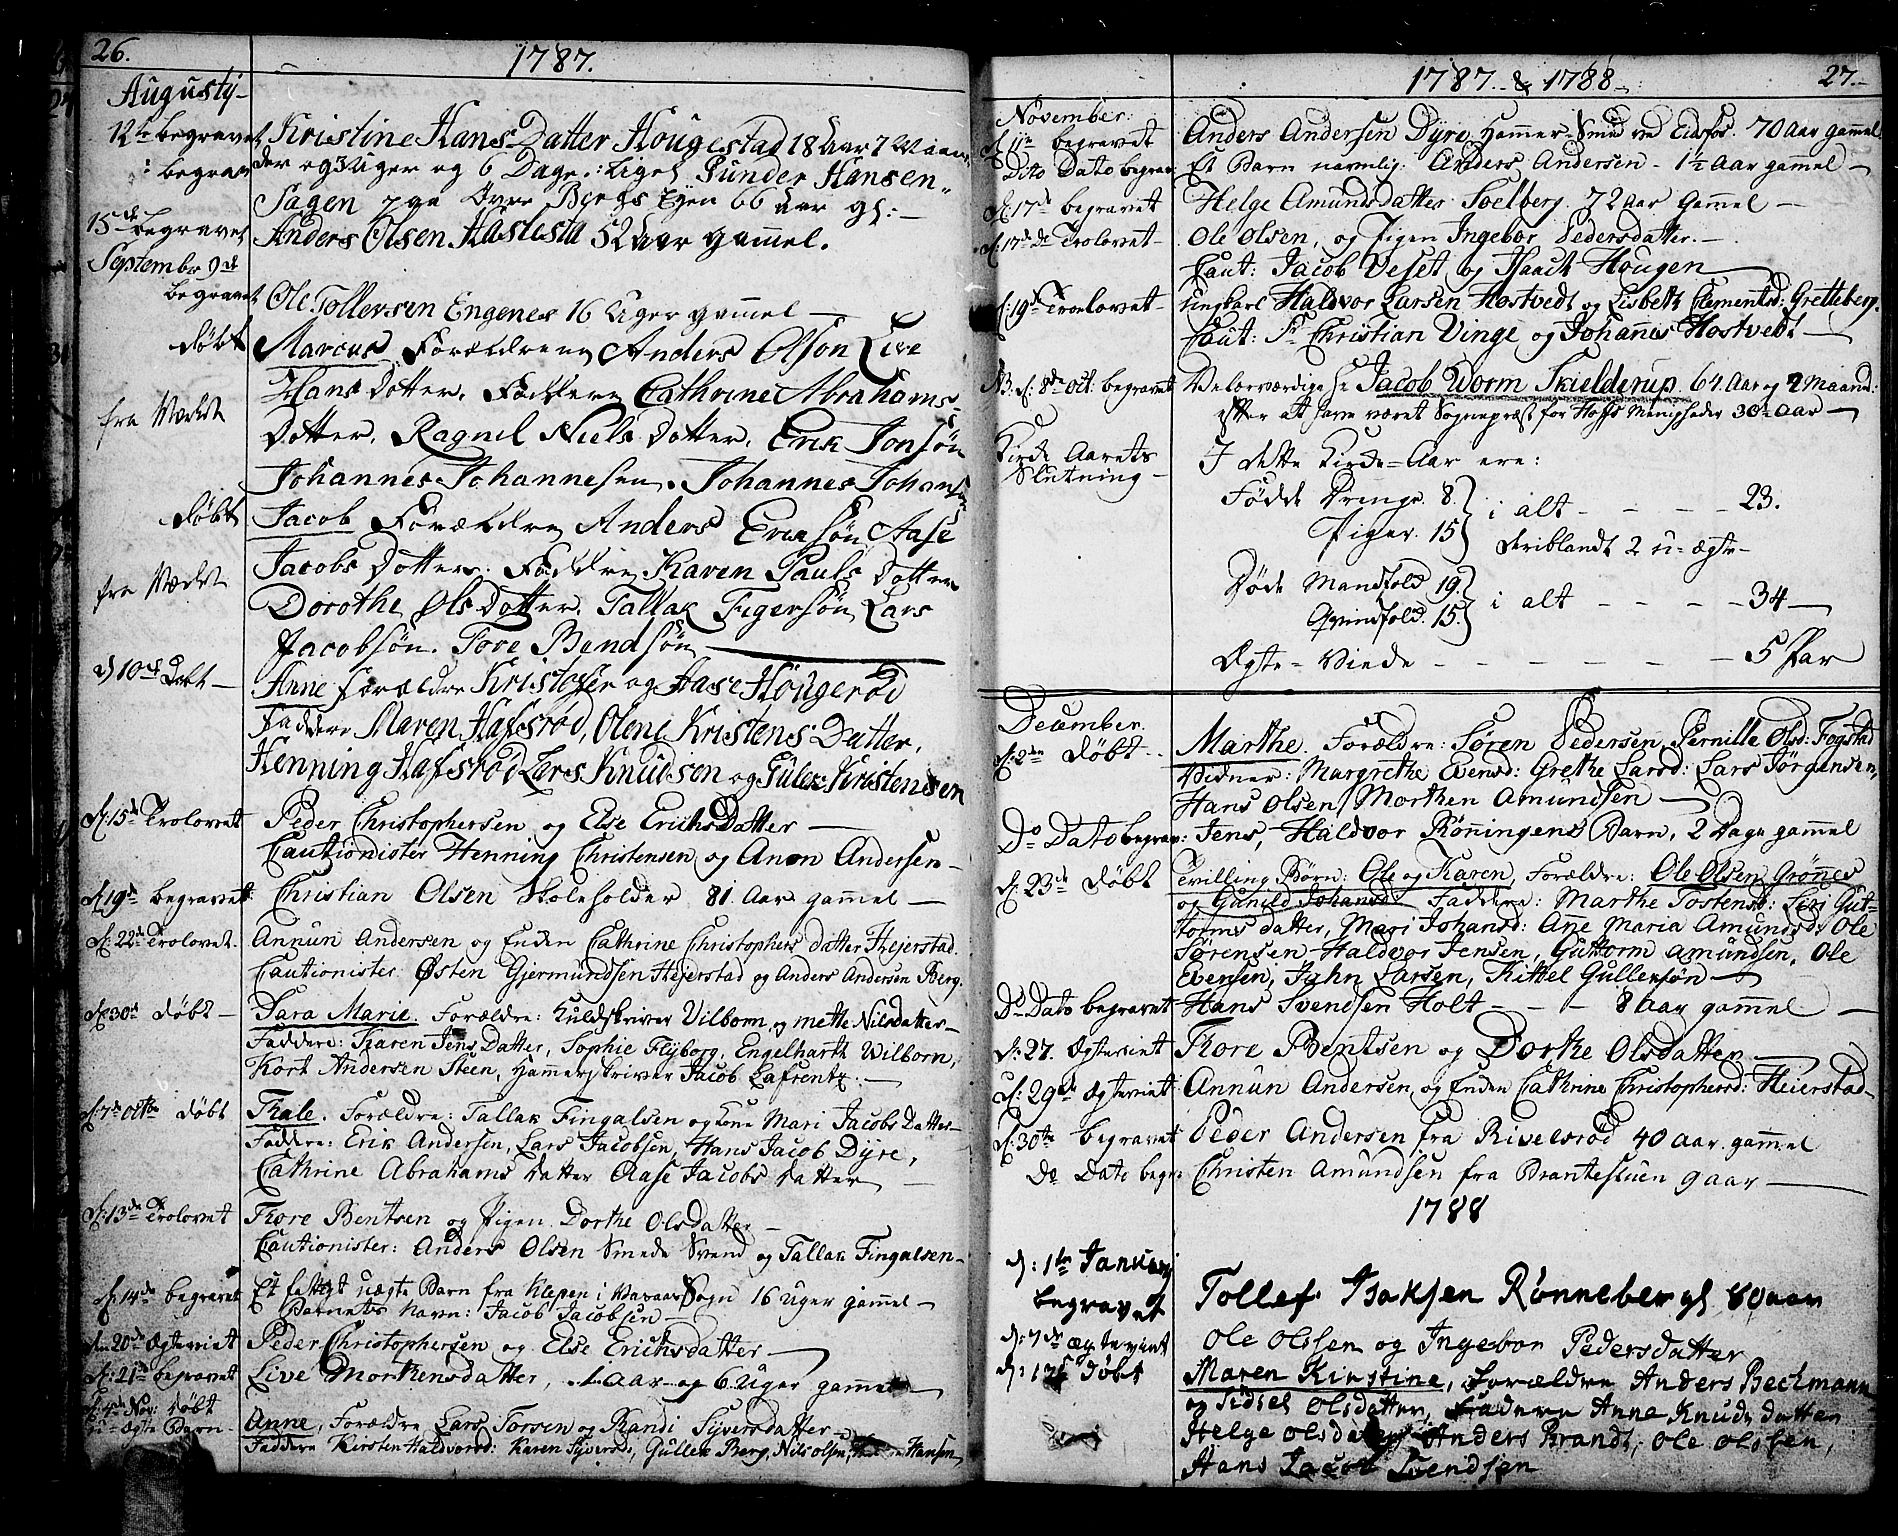 26.
1787.
Augusty-
12te begravet Kristine Hans Datter Hougestad 18 Aar 7 Maan
: begravet der og 3 Uger og 6 Dage. : Liges Gunder Hansen
Sagen paa Øvre Bergs Egen 66 Aar gl: -
15de begravet Anders Olsen Hastesta 52 Aar gammel.
Septembr 9de
begravet Ole Tollevsen Engenes 16 Uger gammel -
døbt Marcus Forældrene Anders Olson Live
Hans Dotter. Faddere Cathrine Abrahams
Dotter. Ragnil Niels Dotter. Erik Jonsøn
Johannes Johannesen. Johannes Johansen
døbt Jacob Forældre Anders Eriksøn Aase
Jacobs Dotter. Faddre Karen Pauls Dotter
Dorothe Ols Dotter. Tallak Figersøn Lars
Jacobsøn. Tore Bendsøn
d 10de Døbt - Anne forældre Kristofer og Aase Hougerød
Faddere Maren Hafsrød, Olene Kristens Datter,
Henning Hafsrød Lars Knudsen og Gulek Kristensen
d: 15de Trolovet Peder Christophersen og Else Erichsdatter -
Cautionister Henning Christensen og Anon Andersen -
d: 19de begravet Christian Olsen Skoleholder 81 Aar gammel -
d: 22de Trolovet. Annun Andersen og Enken Cathrine Christophers datter Hejerstad.
Cautionister Østen Gjermundsen Hejerstad og Anders Andersen Berg.
d: 30te døbt - Sara Marie. Forældre: Kuldskriver Vilborn og Mette Nilsdatter -
Faddere: Karen Jens Datter, Sophie Flyborg, Engelharth Wilborn,
Kort Andersen Steen, Hammerskriver Jacob Lafrentz. -
d: 7de octbr døbt Thale. Forældre: Tallak Fingalsen og Kone Mari Jacobs Datter -
Faddere: Erik Andersen, Lars Jacobsen, Hans Jacob Dyre,
Cathrine Abrahams datter Aase Jacobs datter -
d: 13de Trolovet Thore Bentsen og Pigen Dorthe Olsdatter -
Cautionister: Anders Olsen Smede Svend og Tallak Fingalsen -
d: 14de begravet Et fattigt uægte Barn fra Klepen i Waaar Sogn 16 Uger gammel -
Barnets Navn: Jacob Jacobsen -
d: 20de Ægteviet Peder Christophersen og Else Erichsdatter -
d: 21de begravet Live Morthensdatter, 1 aar og 6 Uger gammel -
d: 4de Nov: døbt
u-ægte Barn - Anne, Forældre Lars Torsen og Randi Syversdatter -
Faddere Kirsten Haldvorsd: Karen Syversd:, Gullek Berg, Nils olsen, Hansen
1787. & 1788 -
27. -
November:
d 11te begravet Anders Andersen Dyre, Hammer-Smed ved Eidsfos. 70 Aar gammel
Dito Dato begrav: Et Barn navnlig: Anders Andersen - 1½ Aar gammel -
d: 17de begravet Helge Amundsdatter Soelberg 72 aar gammel -
d: 17de Trolovet - Ole Olsen, og Pigen Ingebor Pedersdatter. -
Caut: Jacob Veset og Isach Hougen
d: 19de Trolovet - Ungkarl Haldvor Larsen Hostvedt og Lisbeth Clementsd: Gretteberg.
Caut: Sr Christian Vinge og Johannes Hostvedt -
NB. d: 8de Oct. begravet Velærværdige Hr Jacob Worm Skielderup. 64 Aar og 2 Maand:
efter at have været Sognepræst for Hoffs Menigheder 30te Aar -
Kirke Aarets
Slutning -
I dette Kirke-Aar ere:
Fødde Drenge 8.
Piger. 15 } i alt - - - - 23.
deriblandt 2 u-ægte -
Døde Mandfold 19.
Qvindfold. 15. } i alt - - - - 34 -
Ægte-Viede - - - - - - - 5 Par
December
d: 2den døbt - Marthe. Forældre: Søren Pedersen, Pernille Olsd: Fogstad
Vidner: Margrethe Evensd: Grethe Larsd: Lars Jørgensen,
Hans Olsen, Morthen Amundsen -
Do Dato begrav: Jens, Haldvor Rønningens Barn, 2 Dage gammel
d: 23de døbt Tvilling Børn: Ole og Karen, Forældre: Ole Olsen Grønnes
og Gunild Johansd: Faddere: Marthe Tostensd: Siri Gut-
torms datter, Mari Johansd: Anne Maria Amundsd: Ole
Sørensen Haldvor Jensen, Guttorm Amundsen, Ole
Evensen, John Larsen, Kittel Gullesøn -
Do Dato begravet Hans Svendsen Holt - - - 8 Aar gammel -
d: 27. Ægteviet Thore Bentsen og Dorthe Olsdatter -
d: 29de Ægteviet Annun Andersen, og Enken Cathrine Christophersd: Heierstad -
d: 30te begravet Peder Andersen fra Rivelsrød 40 aar. gammel
Do Dato begr: Christen Amundsen fra Brantestuen 9 aar -
1788
d: 1te January
begravet Tollef Isaksen Rønneberg gl 80 aar
d: 7de ægteviet Ole Olssen og Ingebor Pedersdatter
d: 13de Døbt Maren Kirstine, Forældre Anders Bechmann
og Sidsel Olsdatter, Faddere Anne Knuds datter
Helge Olsdatter Anders Brandt, Ole Olssen,
Hans Jacob Svendsen